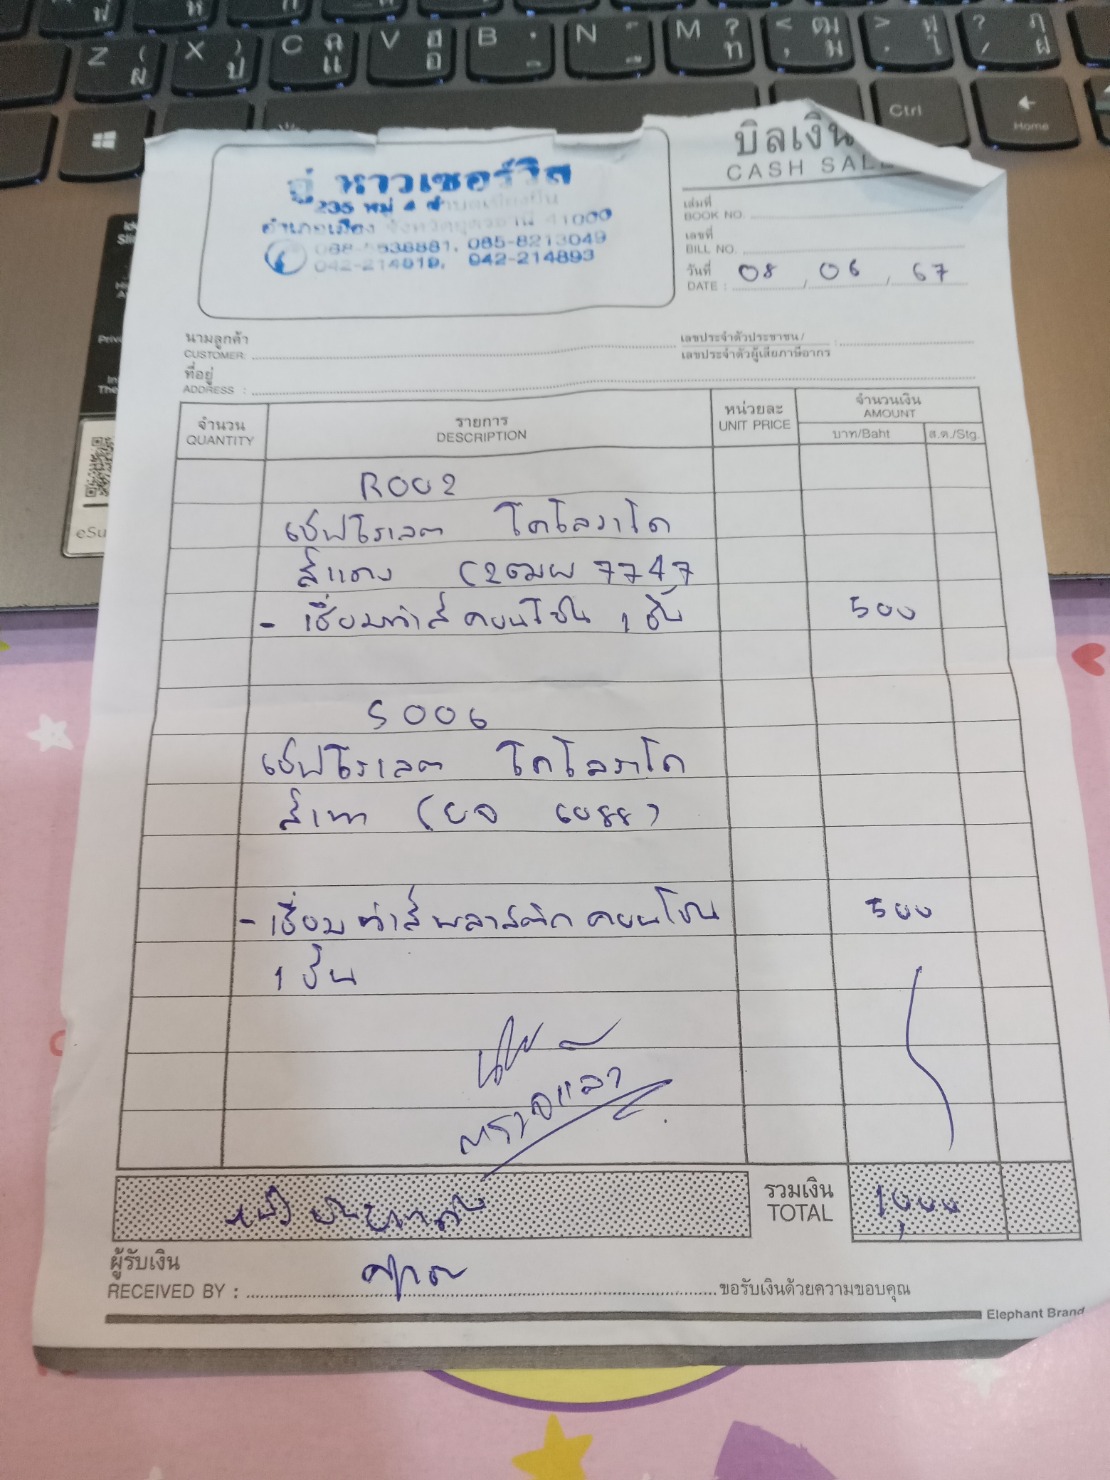 บิลเงิน
CASH SAL
อู่ หาวเซอร์วิส
235 หมู่ 4
อำเภอเมือง 41000
085-8213049
042-214819, 042-214893
เล่มที่
BOOK NO.
เลขที่
BILL NO.
วันที่ 08 06 67
DATE :
นามลูกค้า
CUSTOMER:
เลขประจำตัวประชาชน/ :
เลขประจำตัวผู้เสียภาษีอากร
ที่อยู่
ADDRESS :
จำนวน รายการ หน่วยละ จำนวนเงิน
QUANTITY DESCRIPTION UNIT PRICE AMOUNT
บาท/Baht ส.ต./Stg.
R002
เชฟโรเลต โคโลราโด
สีแดง (2ฒผ 7747
- เชื่อมทำสี คอนโซน 1 ชิ้น 500
S006
เชฟโรเลต โคโลราโด
สีเทา (ยจ 6088)
- เชื่อมทำสีพลาสติก คอนโซน 500
1 ชิ้น
ตรวจแล้ว
รวมเงิน
TOTAL 1,000
หนึ่งพันบาทถ้วน
ผู้รับเงิน
RECEIVED BY : ขอรับเงินด้วยความขอบคุณ
Elephant Brand
Z ผ X ป C แ V อ B N M ท ม
Ctrl
Home